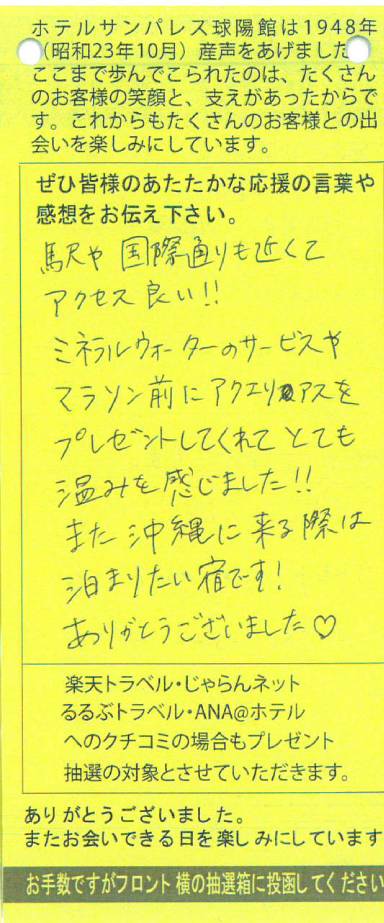 ホテルサンパレス球陽館は1948年
(昭和23年10月)産声をあげました
ここまで歩んでこられたのは、たくさん
のお客様の笑顔と、支えがあったからで
す。これからもたくさんのお客様との出
会いを楽しみにしています。
ぜひ皆様のあたたかな応援の言葉や
感想をお伝え下さい。
駅や国際通りも近くて
アクセス良い!!
ミネラルウォーターのサービスや
マラソン前にアクエリアスを
プレゼントしてくれてとても
温みを感じました!!
また沖縄に来る際は
泊まりたい宿です!
ありがとうございました♡
楽天トラベル・じゃらんネット
るるぶトラベル・ANA@ホテル
へのクチコミの場合もプレゼント
抽選の対象とさせていただきます。
ありがとうございました。
またお会いできる日を楽しみにしています
お手数ですがフロント横の抽選箱に投函してください